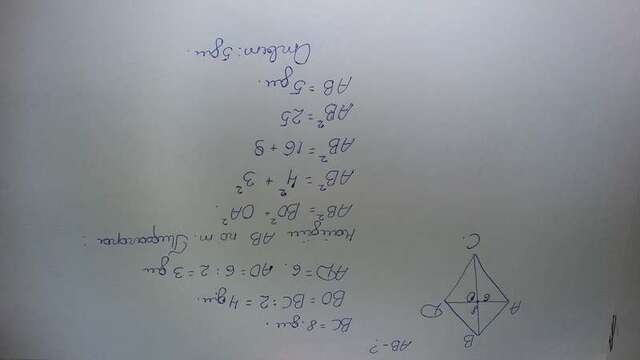 AB - ?
B
A
D
C
O
8
6
BC = 8 дм.
BO = BC : 2 = 4 дм.
AD = 6. AO = 6 : 2 = 3 дм
Найдём AB по т. Пифагора:
AB² = BO² + OA²
AB² = 4² + 3²
AB² = 16 + 9
AB² = 25
AB = 5 дм.
Ответ: 5 дм.